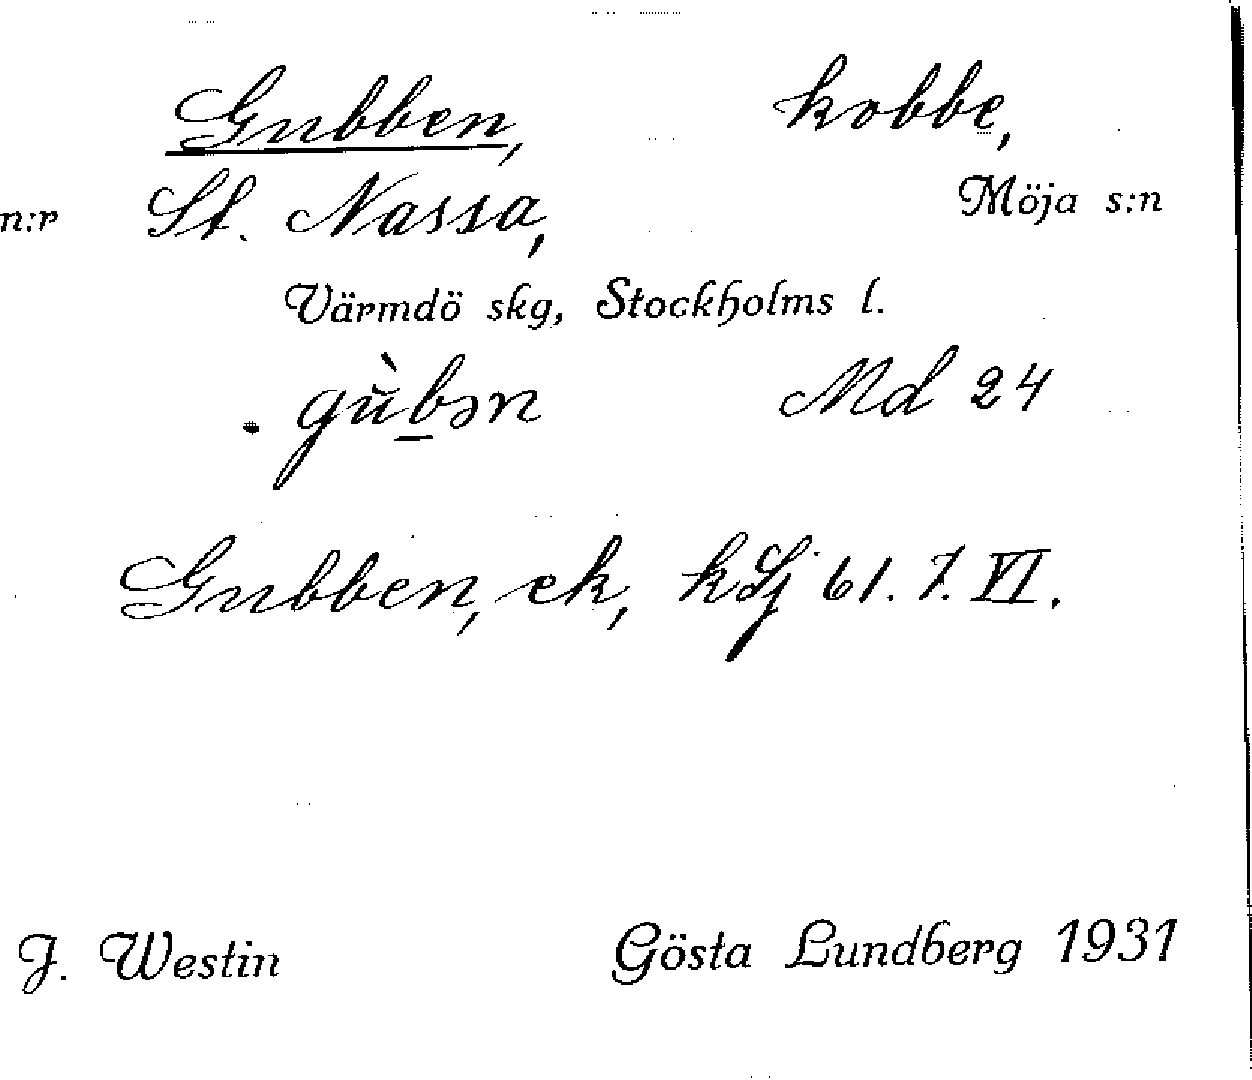 Gubben, kobbe,
n:r St. Nassa, Möja s:n
Värmdö skg, Stockholms l.
gùbən Md 24
Gubben, ek, kSj 61. 7. VI.
J. Westin Gösta Lundberg 1931